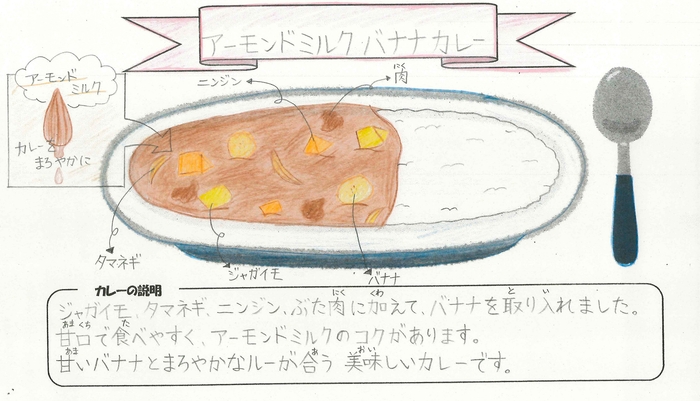 アーモンドミルク・バナナカレー
アーモンド
ミルク
カレーを
まろやかに
ニンジン
にく
肉
タマネギ
ジャガイモ
バナナ
カレーの説明
にく くわ と い
ジャガイモ、タマネギ、ニンジン、ぶた肉に加えて、バナナを取り入れました。
あまくち た
甘口で食べやすく、アーモンドミルクのコクがあります。
あま あ おい
甘いバナナとまろやかなルーが合う 美味しいカレーです。